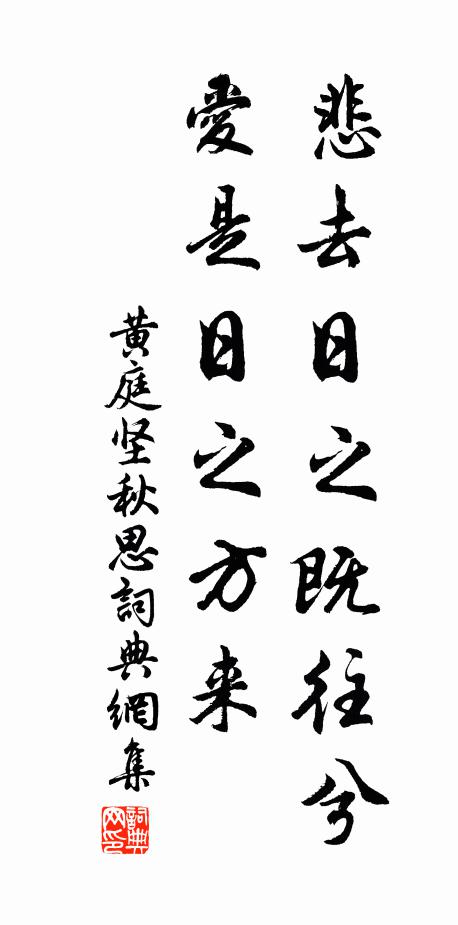 悲去日之既往兮
愛是日之方来
黄庭坚秋思詞典網集
詞典
网印